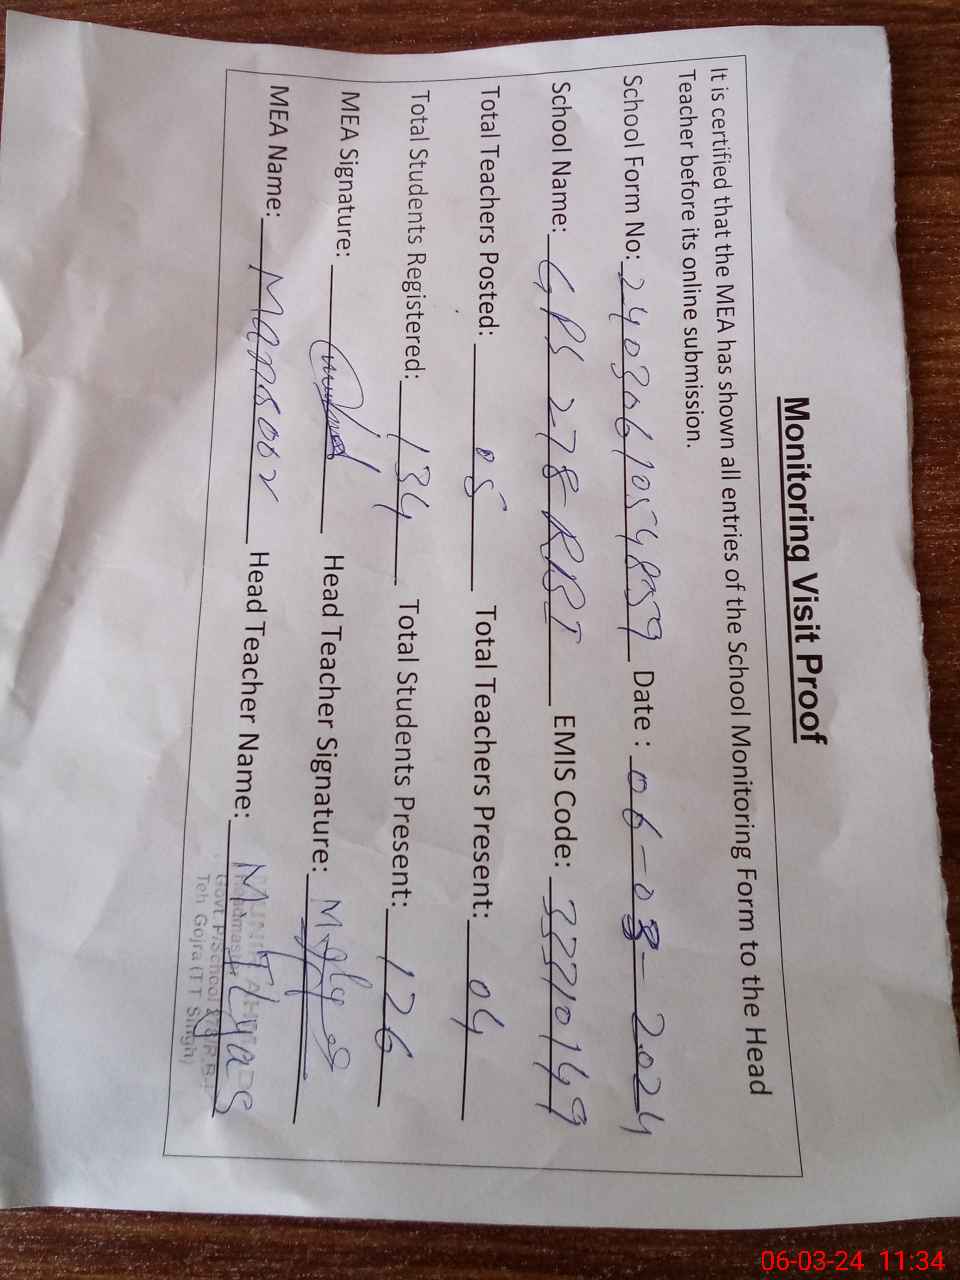 Monitoring Visit Proof
It is certified that the MEA has shown all entries of the School Monitoring Form to the Head
Teacher before its online submission.
School Form No: 2403061054859 Date : 06-03-2024
School Name: GPS 278 RB I EMIS Code: 33210149
Total Teachers Posted: 05 Total Teachers Present: 04
Total Students Registered: 134 Total Students Present: 126
MEA Signature: Head Teacher Signature: M. Ilyas
MEA Name: Mansoor Head Teacher Name: M. Ilyas
Headmaster
Govt P/School 278/R.B-I
Teh Gojra (T.T Singh)
06-03-24 11:34